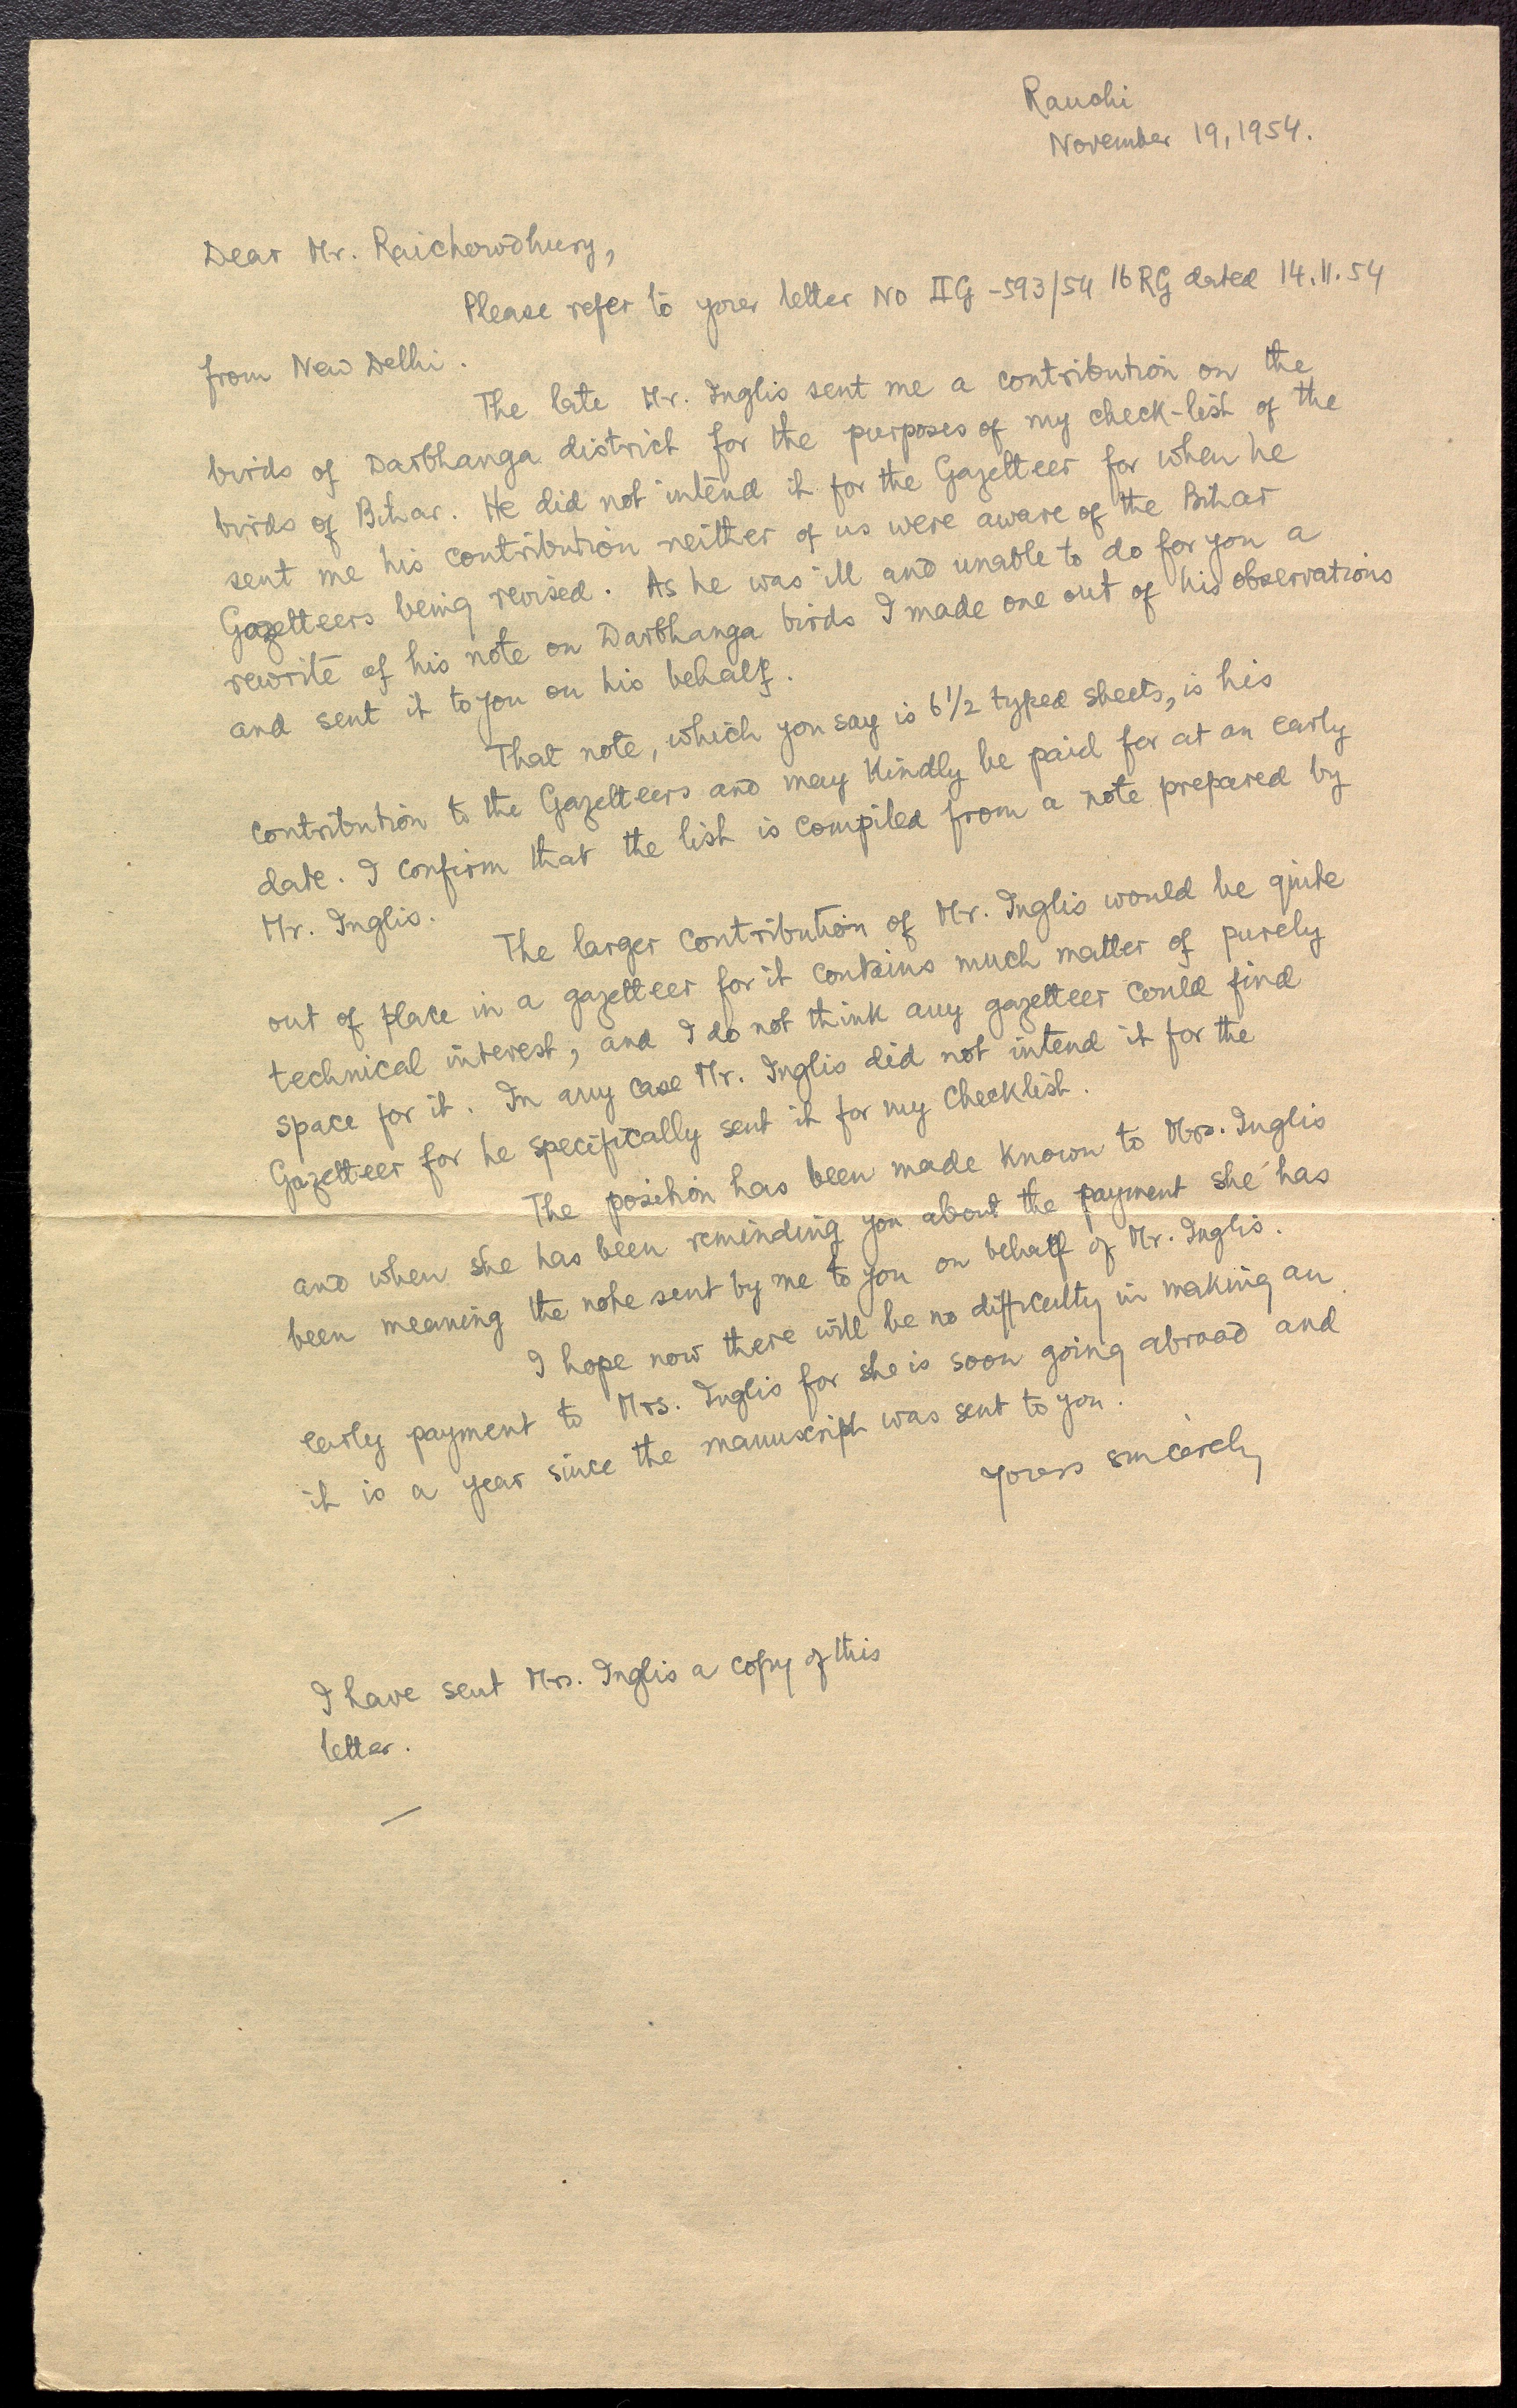 Ranchi
November 19, 1954.
Dear Mr. Raichowdhury,
Please refer to your letter No IIG-593/54 16RG dated 14.11.54
from New Delhi.
The late Mr. Inglis sent me a contribution on the
birds of Darbhanga district for the purposes of my check-list of the
birds of Bihar. He did not intend it for the Gazetteer for when he
sent me his contribution neither of us were aware of the Bihar
Gazetteers being revised. As he was ill and unable to do for you a
rewrite of his note on Darbhanga birds I made one out of his observations
and sent it to you on his behalf.
That note, which you say is 6 1/2 typed sheets, is his
contribution to the Gazetteers and may kindly be paid for at an early
date. I confirm that the list is compiled from a note prepared by
Mr. Inglis.
The larger contribution of Mr. Inglis would be quite
out of place in a gazetteer for it contains much matter of purely
technical interest, and I do not think any gazetteer could find
space for it. In any case Mr. Inglis did not intend it for the
Gazetteer for he specifically sent it for my Checklist.
The position has been made known to Mrs. Inglis
and when she has been reminding you about the payment she has
been meaning the note sent by me to you on behalf of Mr. Inglis.
I hope now there will be no difficulty in making an
early payment to Mrs. Inglis for she is soon going abroad and
it is a year since the manuscript was sent to you.
Yours sincerely
I have sent Mrs. Inglis a copy of this
letter.